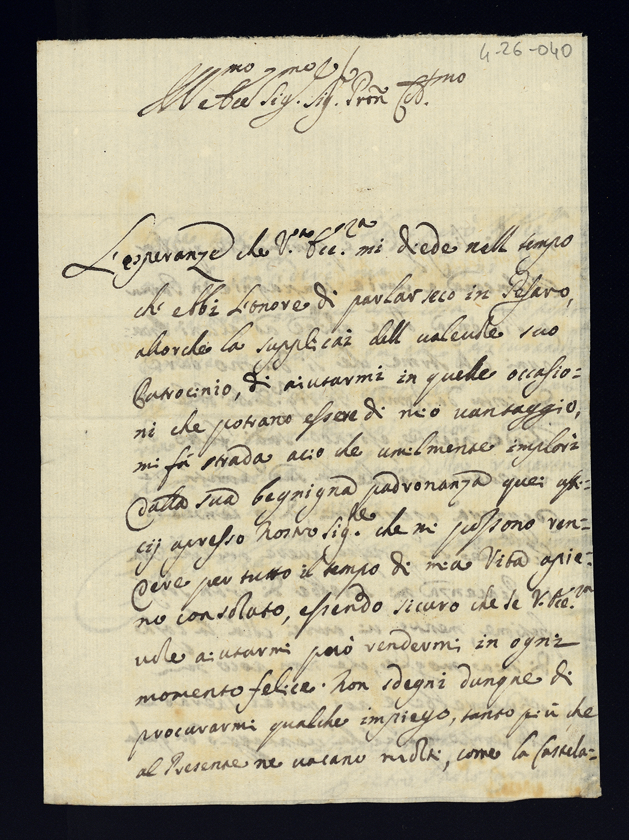 4-26-040
Ill.mo et Ecc.mo Sig.r Sig.r Pron Col.mo
L'esperanze che V.ra Ecc.nza mi diede nell tempo
che ebbi L'onore di parlar seco in Pesaro,
alorche la supplicai dell valevole suo
Patrocinio, di aiutarmi in quelle occasio=
ni che potrano essere di mio vantaggio,
mi fà strada acio che umilmente implori
dalla sua begnigna padronanza quei offi=
cij apresso Nostro Sig.re che mi possono ren=
dere per tutto il tempo di mia Vita apie=
no consolato, essendo sicuro che se V. Ecc.za
vole aiutarmi può rendermi in ogni
momento felice. Non sdegni dunque di
procurarmi qualche impiego, tanto più, che
al Presente ne vacano molti, come la Castela=